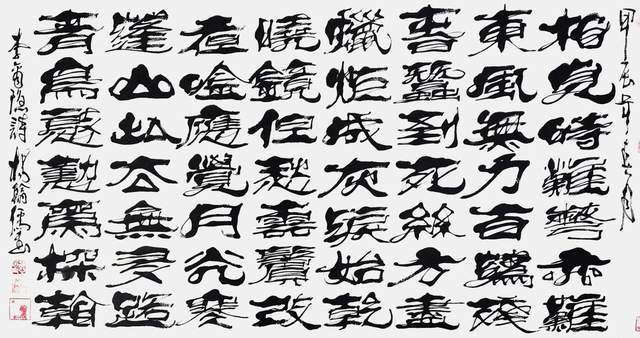 甲辰年月
相見時難別亦難
東風無力百花殘
春蠶到死絲方盡
蠟炬成灰淚始乾
曉鏡但愁雲鬢改
夜吟應覺月光寒
蓬山此去無多路
青鳥殷勤為探看
李商隱詩 楊書